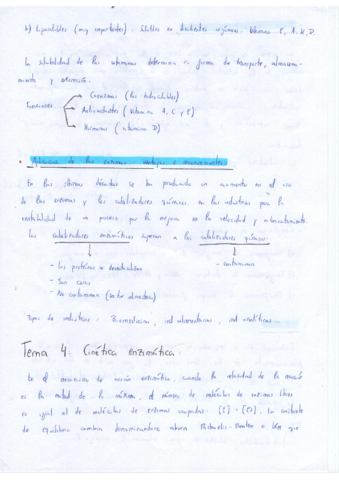 b) Liposolubles (muy importantes). Solubles en disolventes orgánicos. Vitaminas E, A, K, D.
La solubilidad de las vitaminas determina su forma de transporte, almacenamiento
miento y excreción.
Funciones
Coenzimas (las hidrosolubles)
Antioxidantes (vitamina A, C y E)
Hormonas (vitamina D)
• Aplicación de las enzimas ventajas e inconvenientes
En las últimas décadas se ha producido un aumento en el uso
de las enzimas y los catalizadores químicos en las industrias por la
rentabilidad de un proceso por la mejora en la velocidad y
Los catalizadores enzimáticos superan a los catalizadores químicos.
- Las proteínas se desnaturalizan
- Son caras
- No contaminan (sector alimentario)
- contaminan
Tipos de industrias: Biomedicina, ind alimentarias, ind analíticas.
Tema 4. Cinética enzimática.
En el mecanismo de acción enzimática, cuando la velocidad de la reacción
es la mitad de la máxima, el número de moléculas de enzimas libres
es igual al de moléculas de enzimas ocupadas. [E] = [ES]. La constante
de equilibrio cambia denominándose ahora Michaelis-Menten o KM que